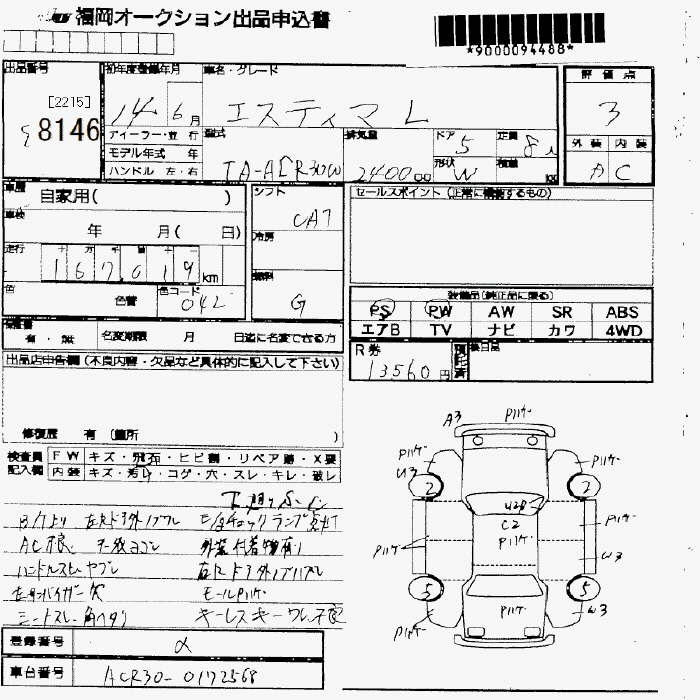 福岡オークション出品申込書
*9000094488*
出品番号
[2215]
8146
初年度登録年月
14年 6月
ディーラー・並行
モデル年式 年
ハンドル 左・右
車名・グレード
エスティマ L
型式
TA-ACR30W
排気量
2400cc
ドア
5
定員
8人
形状
W
積載
評価点
3
外装 内装
A C
車歴
自家用( )
車検
年 月( 日)
走行
十 万 千 百 十 一
167,019 km
色
色替
色コード
042
シフト
CA7
冷房
燃料
G
セールスポイント(正常に機能するもの)
装備品(純正品に限る)
PS PW AW SR ABS
エアB TV ナビ カワ 4WD
保証書
有・無
名変期限 月 日迄に名変できる方
R券
13560円
預託済
後日品
出品店申告欄(不良内容・欠品など具体的に記入して下さい)
修復歴 有 (箇所 )
検査員記入欄
FW キズ・飛石・ヒビ割・リペア跡・X要
内装 キズ・汚レ・コゲ・穴・スレ・キレ・破レ
下廻りS.C
エンジンチェックランプ点灯
AC不良 天張ヨゴレ 外装付着物有り
ハンドルスレヤブレ
左サンバイザー欠 モールPハゲ
シートスレ キーレスキーワレ不良
登録番号
α
車台番号
ACR30-0172568
A3
Pハゲ
Pハゲ
U3
2
Pハゲ
2
U2B
C2
Pハゲ
Pハゲ
Pハゲ
U3
5
5
Pハゲ
Pハゲ
U3